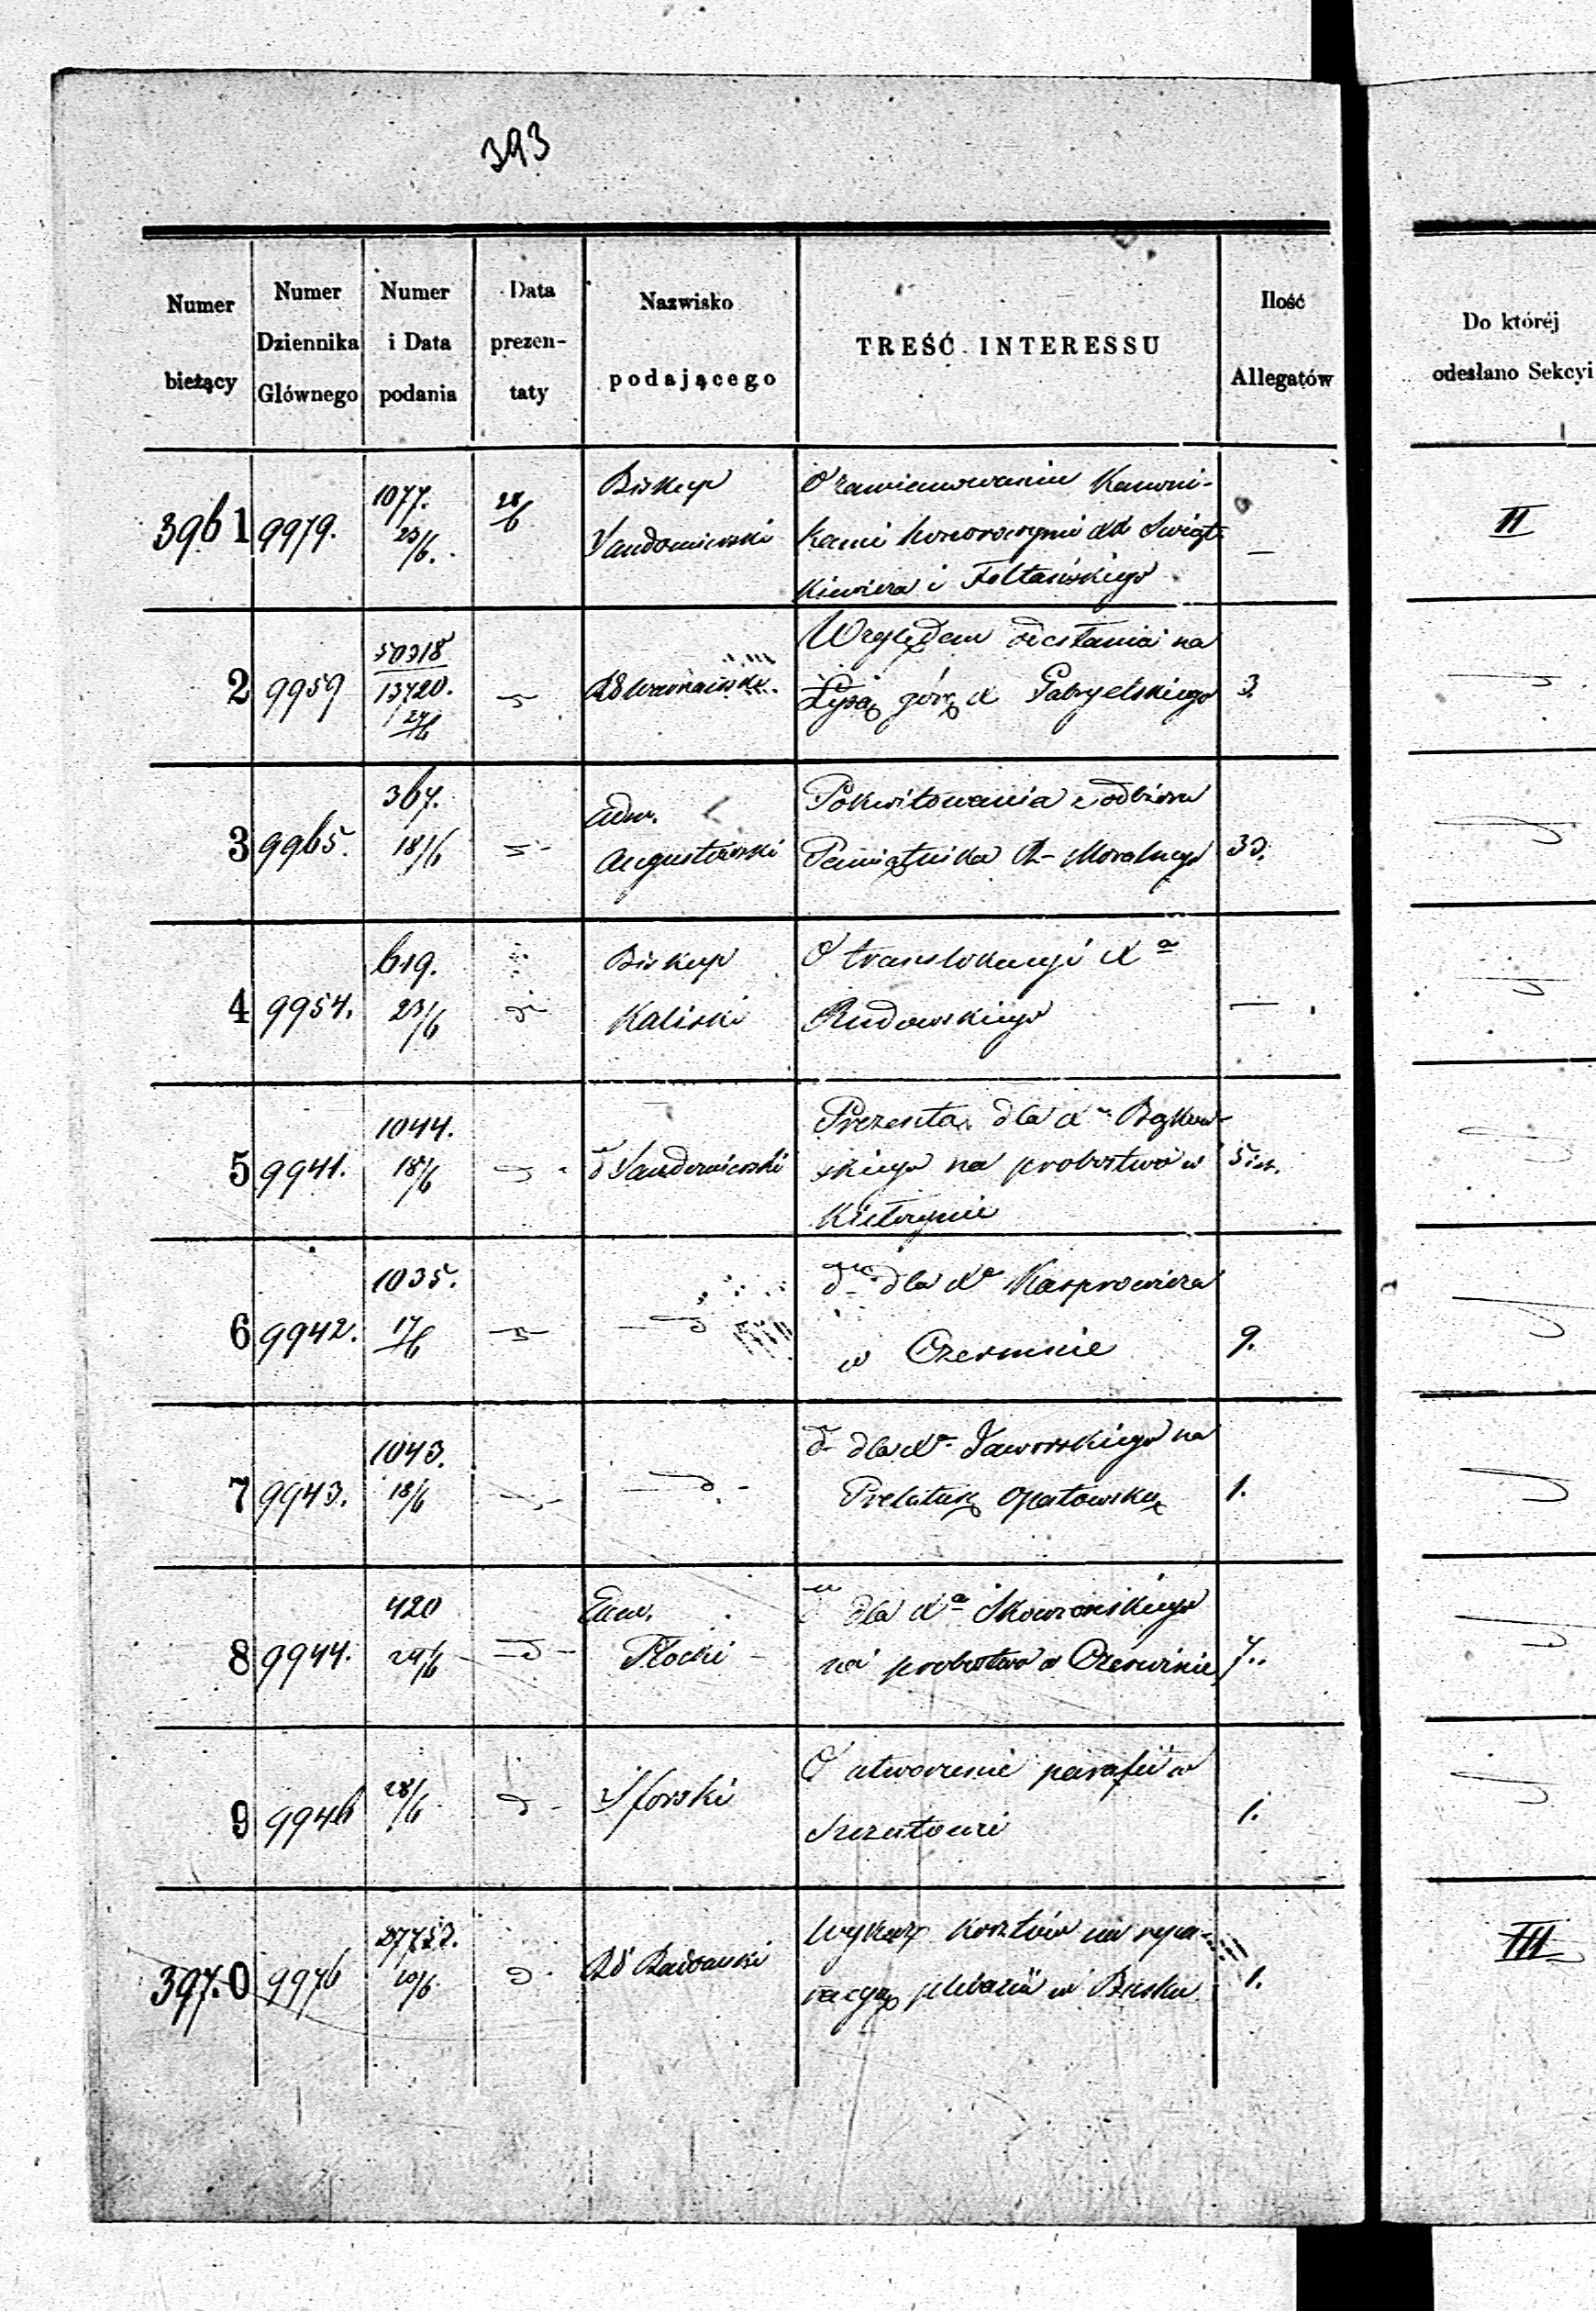 393
Numer bieżący
Numer Dziennika Głównego
Numer i Data podania
Data prezen- taty
Nazwisko podającego
TREŚĆ INTERESSU
Ilość Allegatów
Do któréj odesłano Sekcyi
3961 9979. 1077. 23/6. 28/6 Biskup Sandomierski
O zamianowaniu Kanoni-
kami honorowymi XX Świąt-
kiewicza i Fołtańskiego —
II
2 9959 50318 13720. 24/6 Względem odesłania na
Łysą górę X Gabryelskiego 3.
3 9965. 367. 18/6 Adm. Augustowski
Pokwitowania z odbioru
Pamiętnika R. Moralnego 33.
4 9954. 619. 23/6 d° Biskup Kaliski
O translokacyi Xa
Rudowskiego —
5 9941. 1044. 18/6 d° Sandomierski
Prezenta dla Xa
skiego na probostwo w 5
6 9942. 1035. 17/6 d°
d° dla Xa Kasprowicza
w Czerminie 9.
7 9943. 1043. 18/6 d°
d° dla Xa Jaworskiego na
Prelaturę Opatowską 1.
8 9944. 420 24/6 d° Adm. Płocki
d° dla Xa Skowrońskiego
na probostwo w Czerwinie 7.
9 9946 28/6 d°
O utworzenie parafii w
Szczutowie 1.
3970 9976 27753. 10/6 d° RG Radomski
Wykaz kosztów na repa-
racyę plebanii w Busku 1.
III